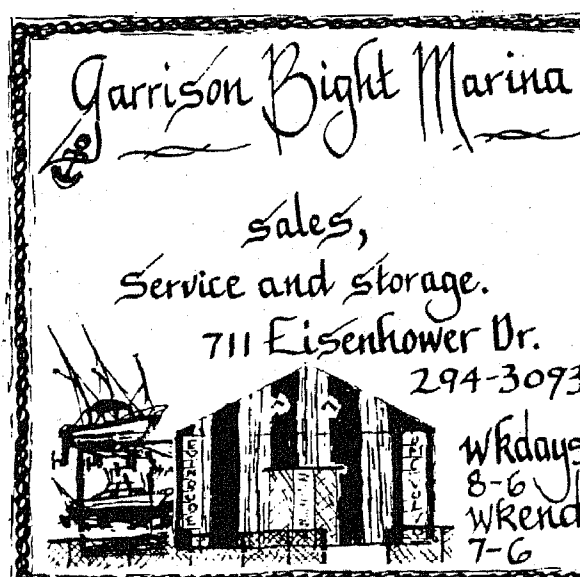 Garrison Bight Marina
sales,
service and storage.
711 Eisenhower Dr.
294-3093
wkdays
8-6
wkend
7-6
EVINRUDE